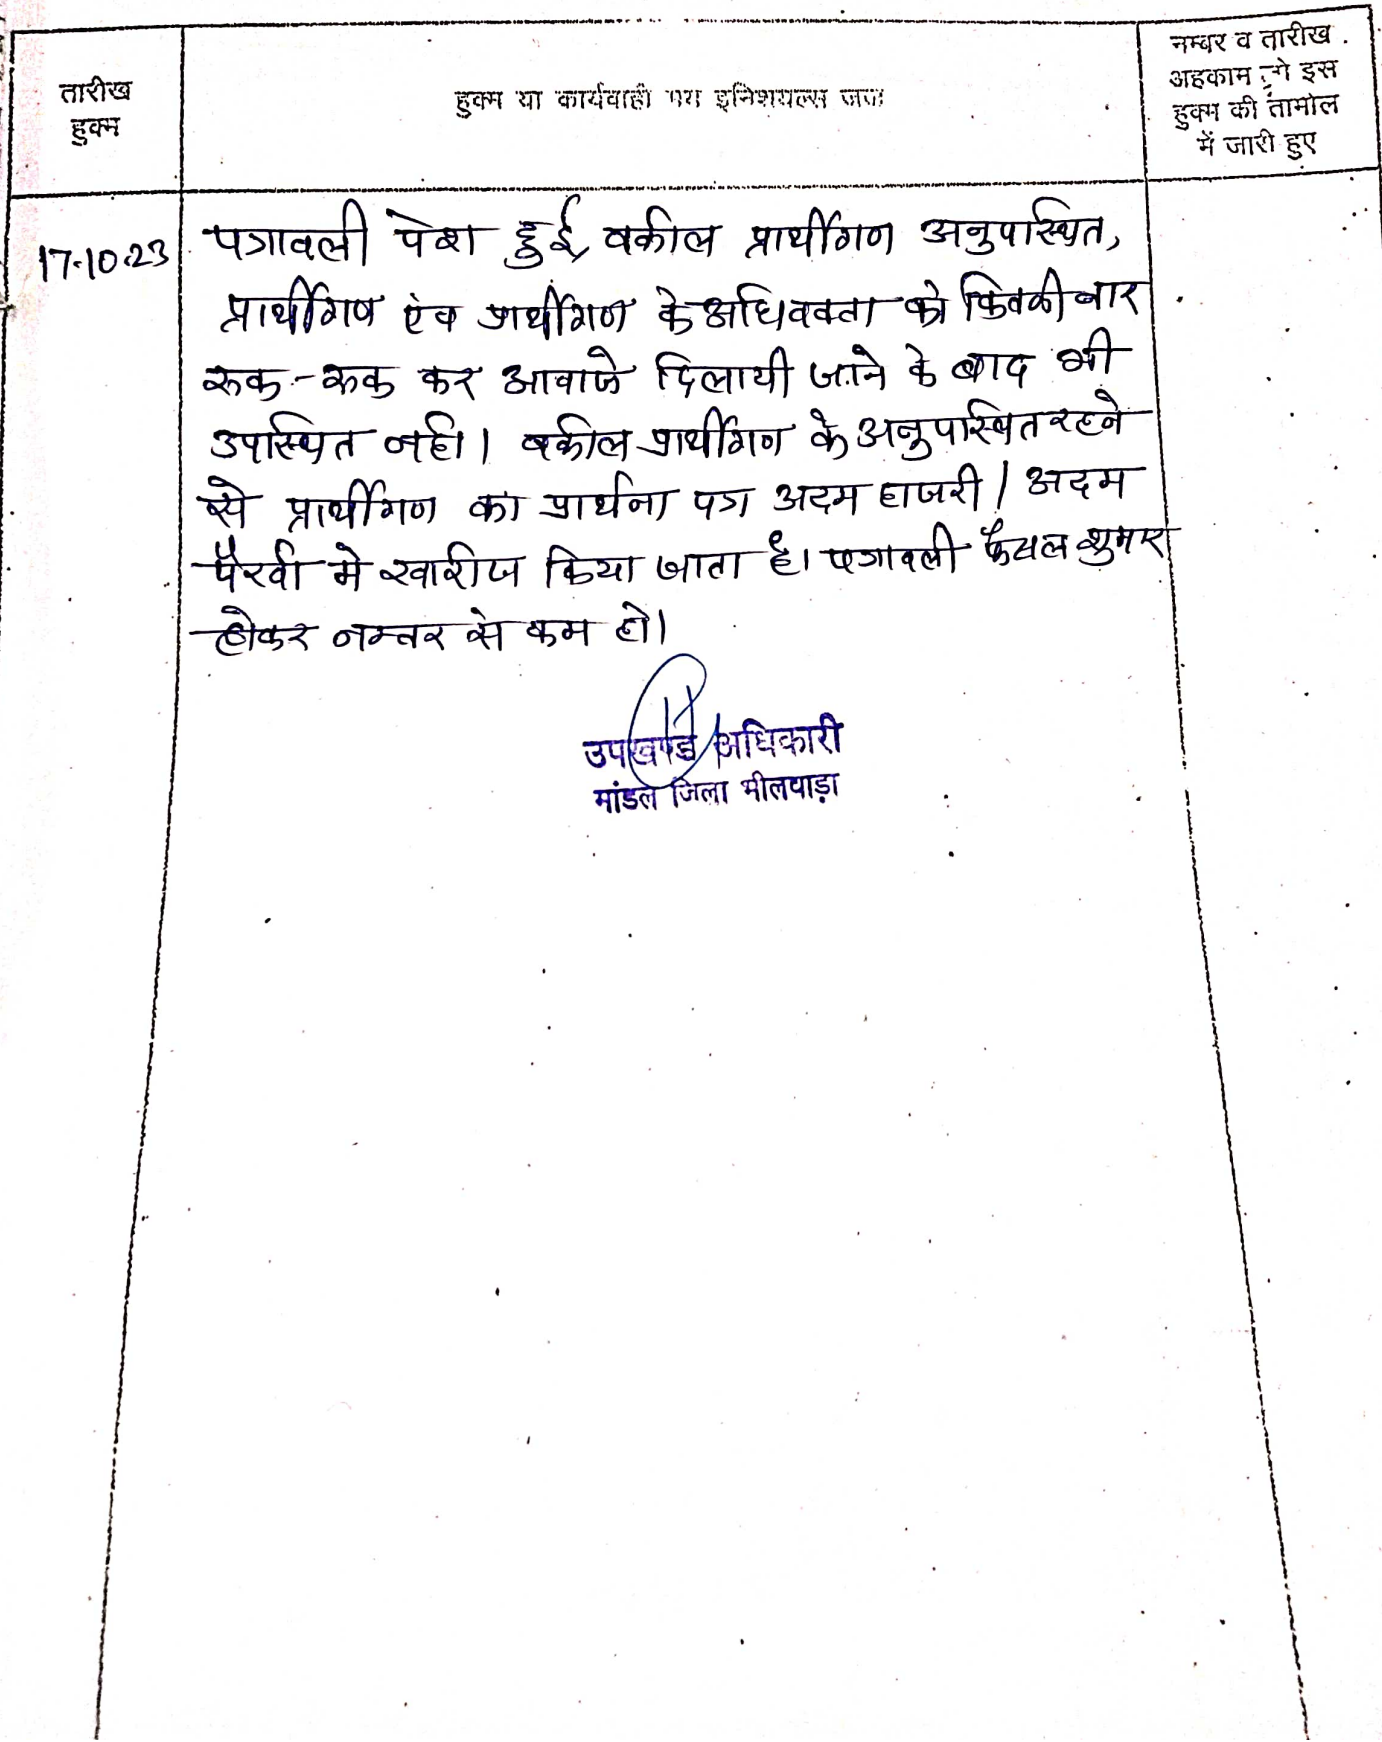 तारीख
हुक्म
हुक्म या कार्यवाही मय इनिशयल्स जज
नम्बर व तारीख
अहकाम जो इस
हुक्म की तामील
में जारी हुए
17.10.23
पत्रावली पेश हुई, वकील प्रार्थीगण अनुपस्थित,
प्रार्थीगण एंव प्रार्थीगण के अधिवक्ता को बार
रूक-रूक कर आवाजे दिलायी जाने के बाद भी
उपस्थित नही। वकील प्रार्थीगण के अनुपस्थित रहने
से प्रार्थीगण का प्रार्थना पत्र अदम हाजरी/अदम
पैरवी मे खारीज किया जाता है। पत्रावली फैसल शुमार
होकर नम्बर से कम हो।
उपखण्ड अधिकारी
मांडल जिला भीलवाड़ा